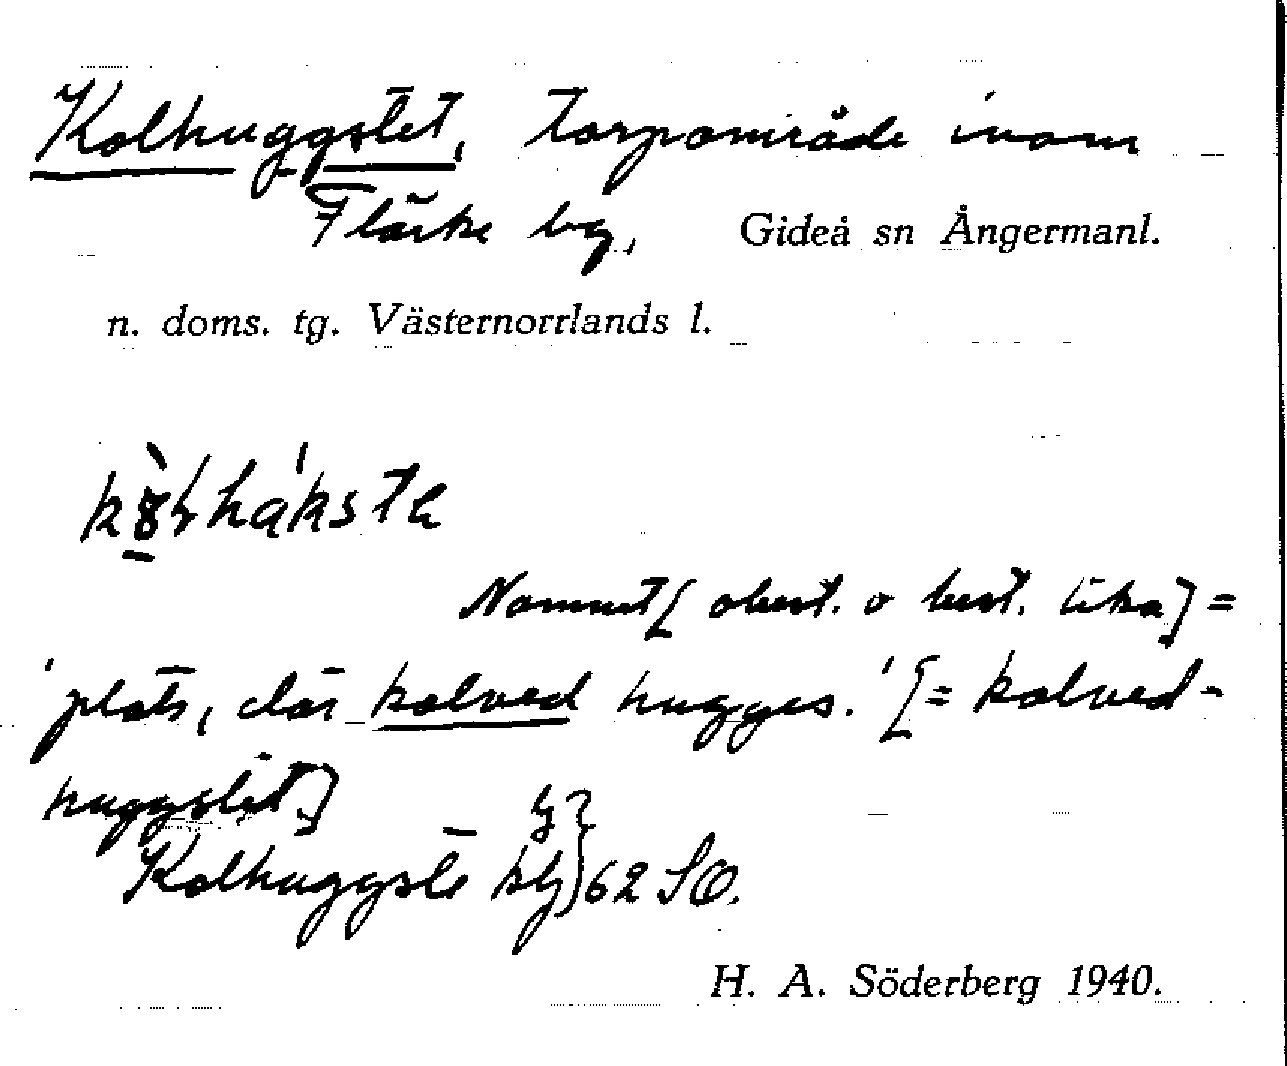 Kolhuggstet, torpområde inom
Flärke by, Gideå sn Ångermanl.
n. doms. tg. Västernorrlands l.
Namnet [obest. o best. lika] =
'plats, där kolved hugges.' [= kolved-
huggstet]
Kolhuggste 62 SO.
H. A. Söderberg 1940.